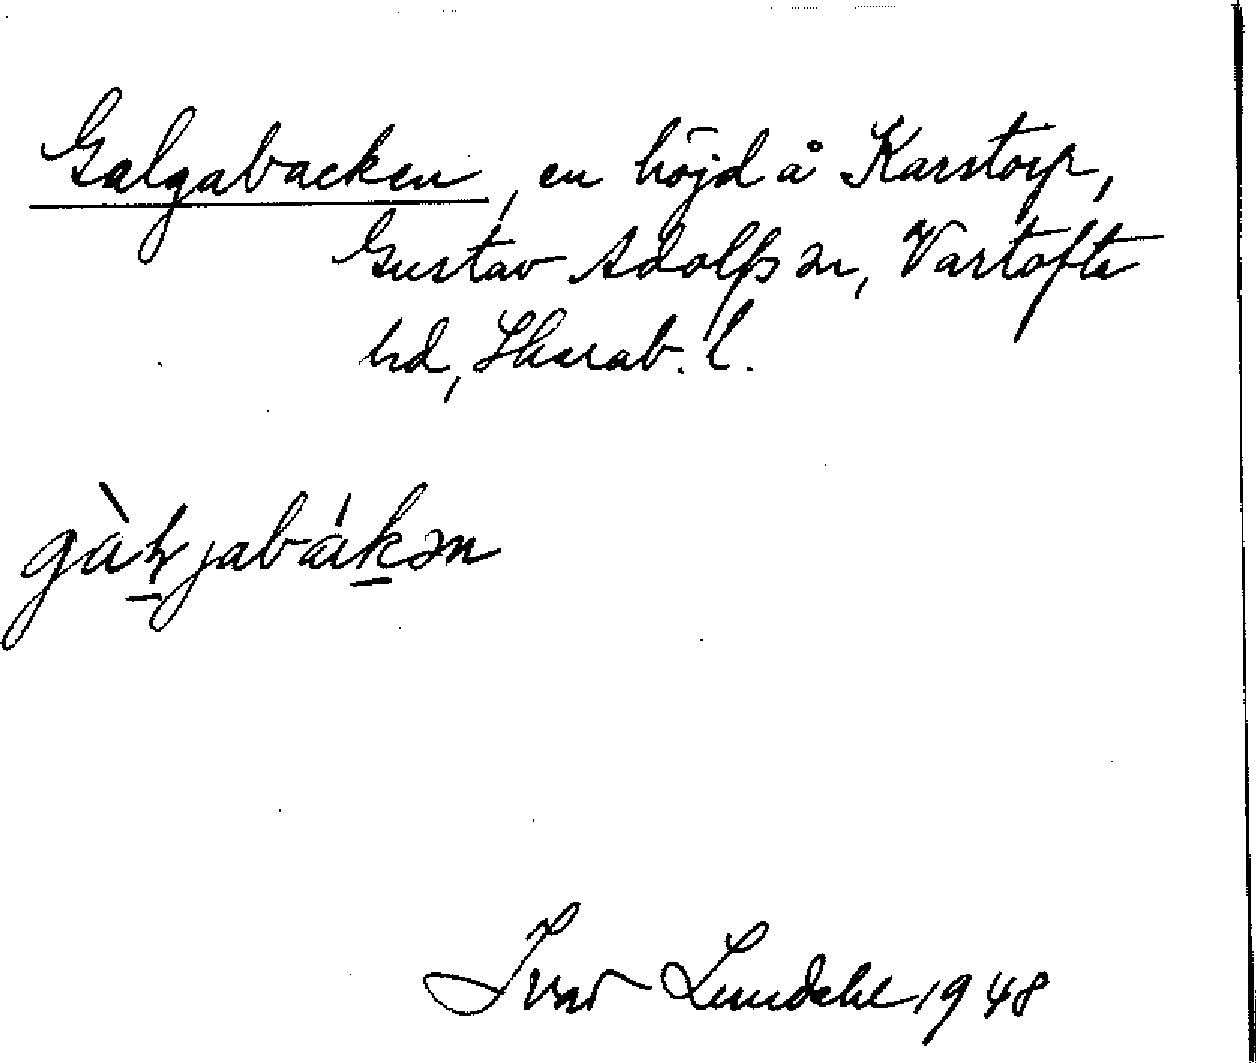 Galgabacken, en höjd å Karstorp,
Gustav Adolfs sn, Vartofta
hd, Skarab. l.
Ivar Lundahl 1948